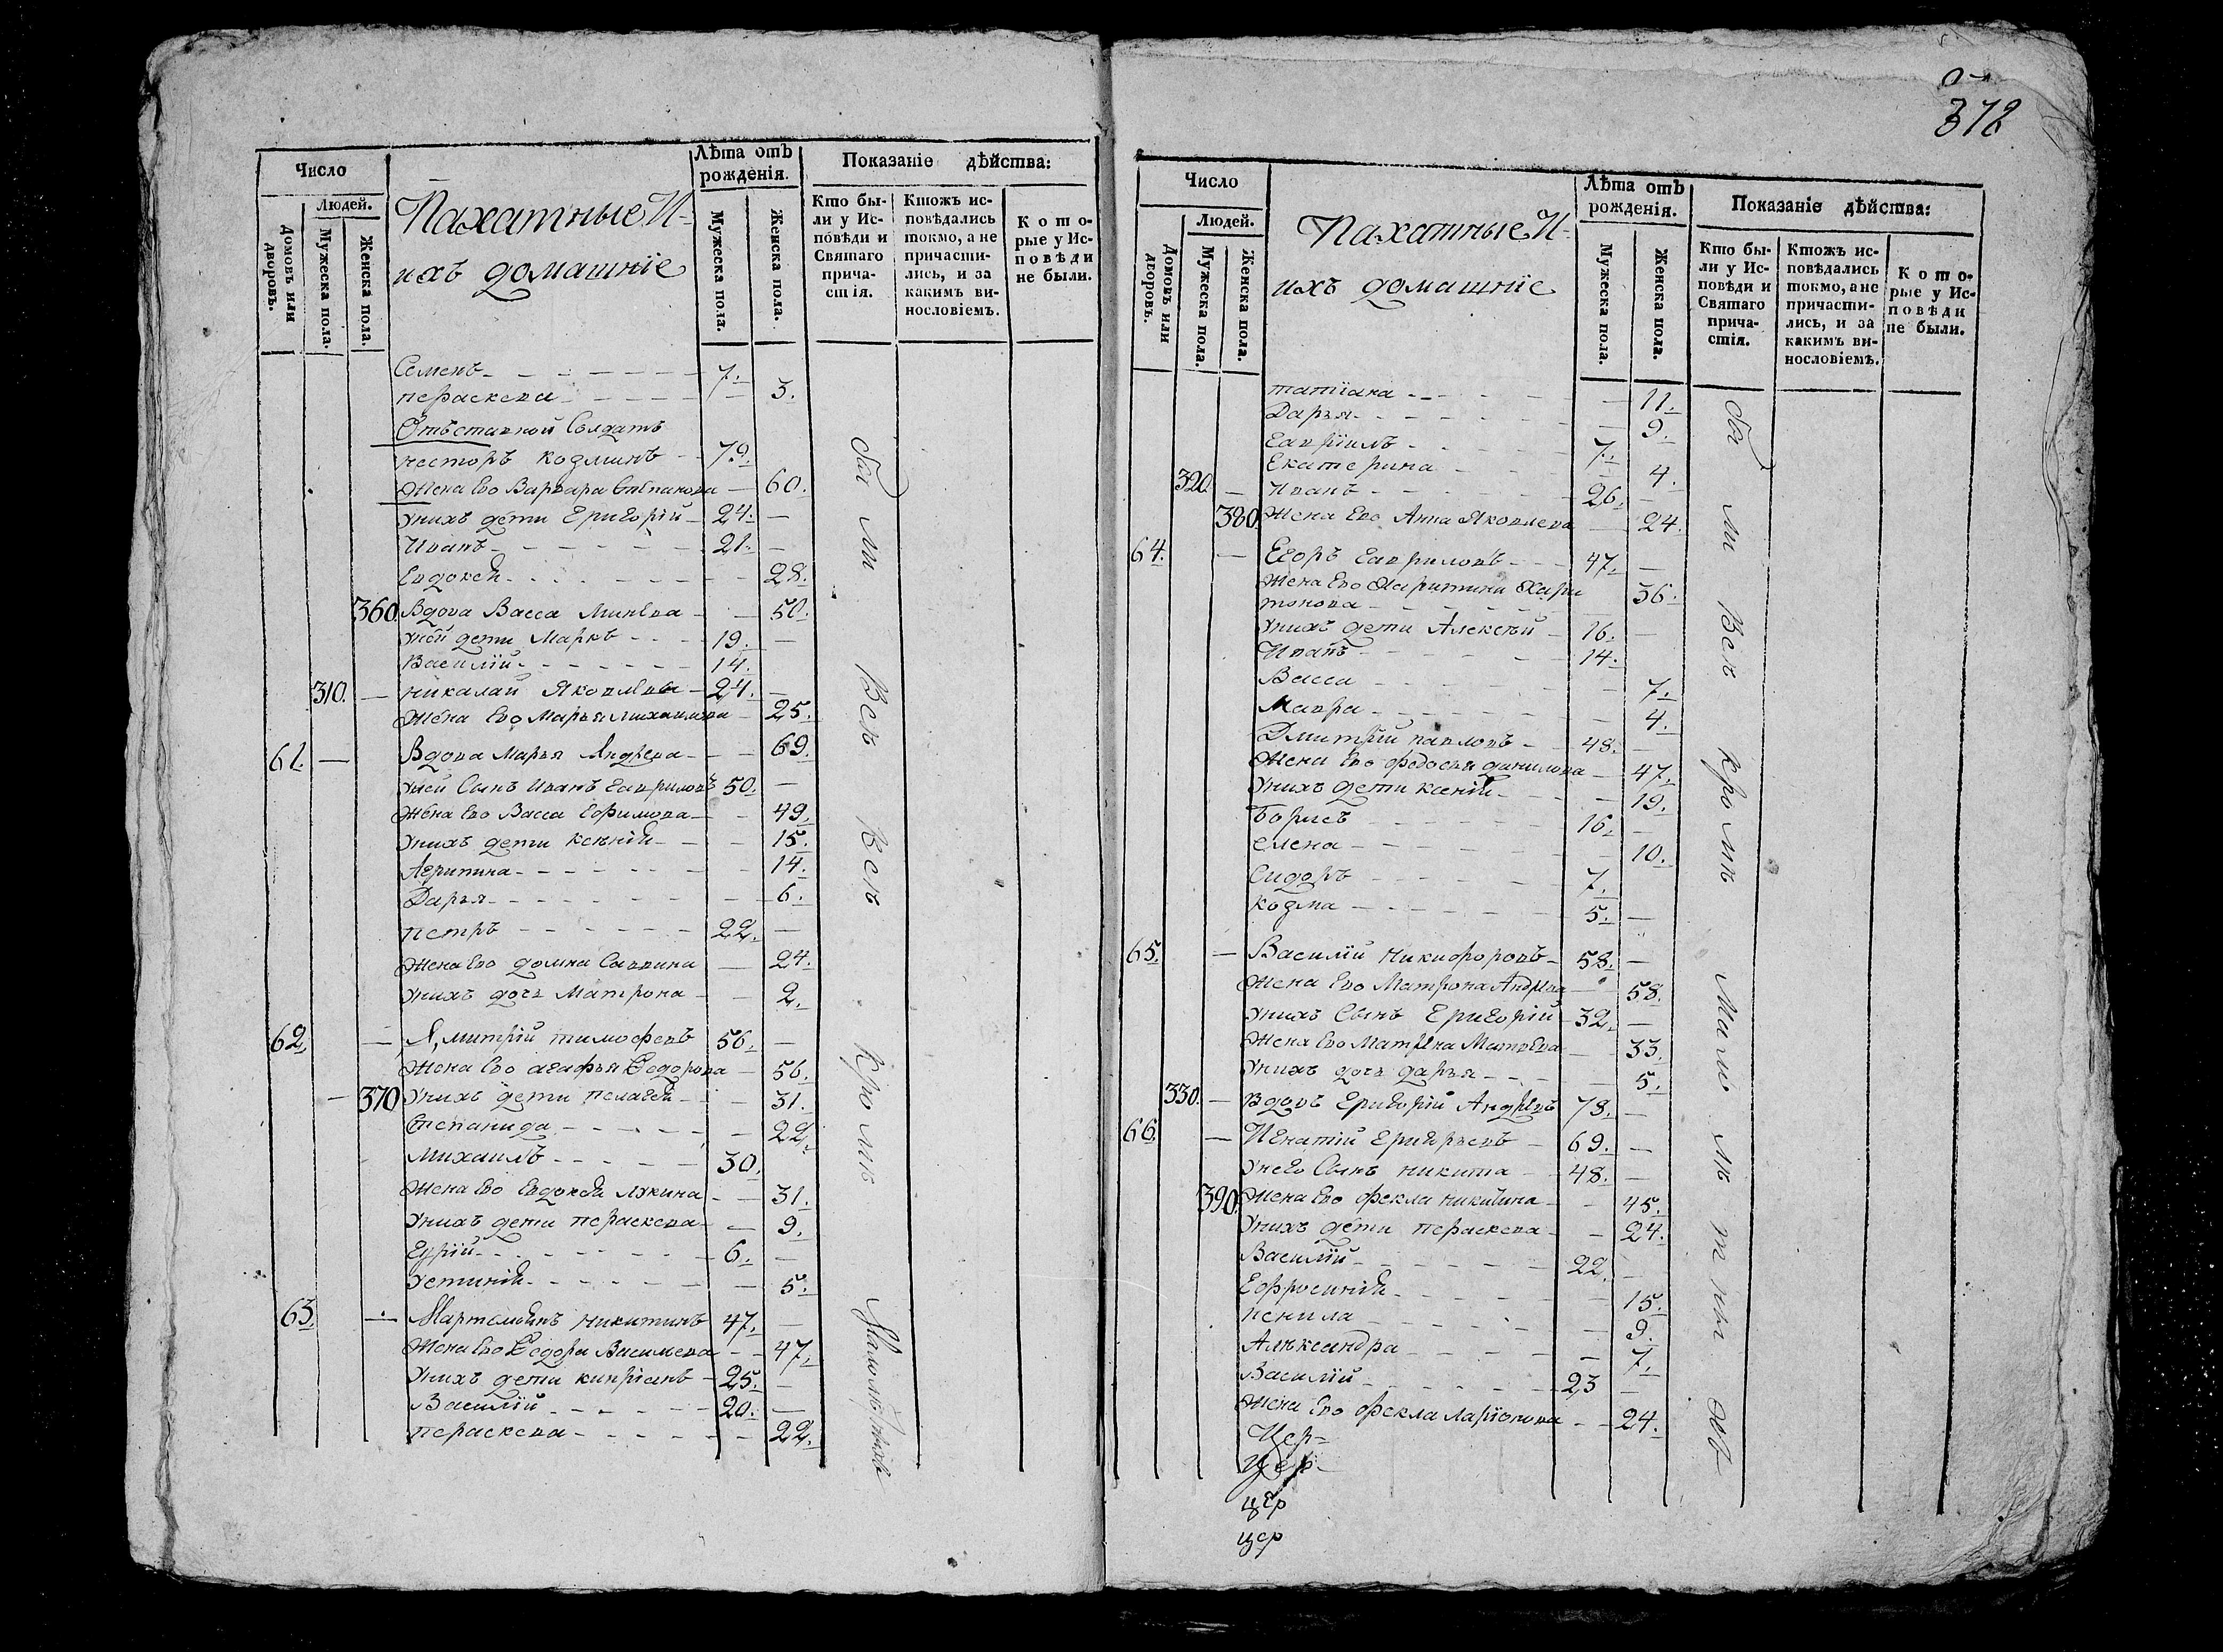 Число
Людей.
Домовъ или дворовъ.
Мужеска пола.
Женска пола.
Пахатные И
ихъ домашніе
Лѣта отъ рожденія.
Мужеска пола.
Женска пола.
Показаніе дѣйства:
Кто бы-
ли у Ис-
повѣди и
Святаго
прича-
стія.
Ктожъ ис-
повѣдались
токмо, а не
причасти-
лись, и за
какимъ ви-
нословіемъ.
Кото-
рые у Ис-
повѣди
не были.
Семенъ 7.
параскева 3.
Отъставной Солдатъ
несторъ козминъ 79.
Жена Ево Варвара Степанова 60.
Унихъ дети Григорій 24.
Иванъ 21.
Евдокея 28.
360. Вдова Васса Минева 50.
Уней дети Маркъ 19.
Василій 14.
310. николай Яковлевъ 24.
Жена Ево Марья михаилова 25.
61. Вдова Марья Андрева 69.
Уней Сынъ Иванъ Гавриловъ 50.
Жена Ево Васса Ефимова 49.
Унихъ дети Ксенія 15.
Агрипина 14.
Дарья 6.
петръ 22.
Жена Ево домна Саввина 24.
Унихъ дочь Матрона 2.
62. Дмитрій тимофеевъ 56.
Жена Ево агафья Федорова 56.
370 Унихъ дети пелагея 31.
Степанида 22.
Михаилъ 30.
Жена Ево Евдокея лукина 31.
Унихъ дети параскева 9.
Гурій 6.
Устинія 5.
63. Никитинъ 47.
Жена Ево Федора Василева 47.
Унихъ дети кипріянъ 25.
Василій 20.
параскева 22.
бы ли Всѣ Всѣ Кро мѣ
372
Число
Людей.
Домовъ или дворовъ.
Мужеска пола.
Женска пола.
Пахатные И
ихъ домашніе
Лѣта отъ рожденія.
Мужеска пола.
Женска пола.
Показаніе дѣйства:
Кто бы-
ли у Ис-
повѣди и
Святаго
прича-
стія.
Ктожъ ис-
повѣдались
токмо, а не
причасти-
лись, и за
какимъ ви-
нословіемъ.
Кото-
рые у Ис-
повѣди
не были.
татіана 11.
Дарья 9.
Гавріилъ 7.
Екатерина 4.
320. Иванъ 26.
380. Жена Ево Анна Яковлева 24.
64. Егоръ Гавриловъ 47.
Жена Ево Харитина Хари
тонова 36.
Унихъ дети Алексѣй 16.
Иванъ 14.
Васса 7.
Мавра 4.
Дмитрій павловъ 48.
Жена Ево федосья данилова 47.
Унихъ дети ксенія 19.
Борисъ 16.
елена 10.
Сидоръ 7.
козма 5.
65. Василій Никифоровъ 58.
Жена Ево Матрона Андрева 58.
Унихъ Сынъ Григорій 32.
Жена Ево Матрена Матвева 33.
Унихъ дочь дарья 5.
330. вдовъ Григорій Андревъ 78.
66. Игнатій Григорьевъ 69.
Унего Сынъ никита 48.
390. Жена Ево фекла никитина 45.
Унихъ дети параскева 24.
Василій 22.
Ефросинія 15.
ненила 9.
Александра 7.
Василій 23
Жена Ево фекла Ларіонова 24.
Цер
Цер
цер
цер
бы ли Всѣ Кро мѣ Мало лѣ тны ов